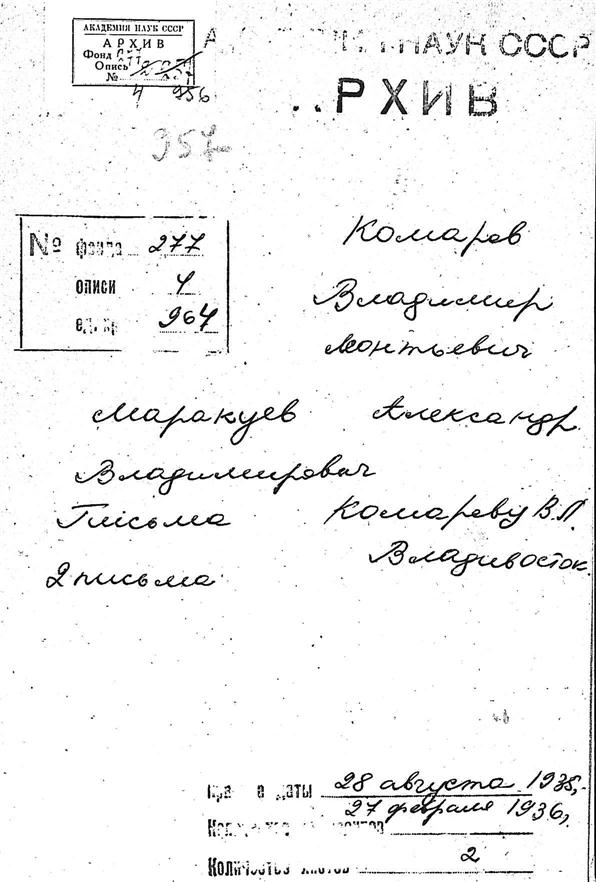 АКАДЕМИЯ НАУК СССР
АРХИВ
Фонд 277
Опись
№
4 956
НАУК СССР
РХИВ
357
№ фонда 277
описи 4
ед. хр 964
Комаров
Владимир
Леонтьевич
Маракуев Александр
Владимирович
Письма Комарову В.Л.
Владивосток.
2 письма
даты 28 августа 1935,-
27 февраля 1936г.
Количество листов 2